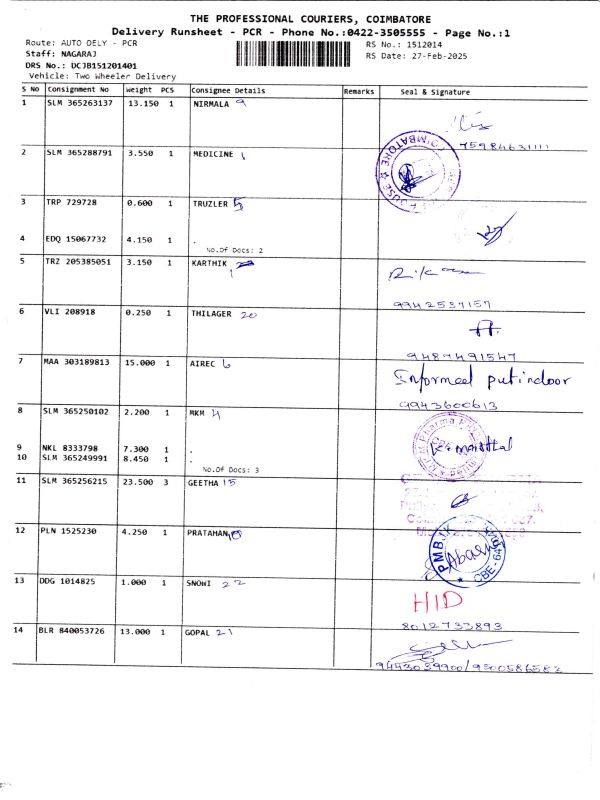 THE PROFESSIONAL COURIERS, COIMBATORE
Delivery Runsheet - PCR - Phone No.:0422-3505555 - Page No.:1
Route: AUTO DELY - PCR RS No.: 1512014
Staff: NAGARAJ RS Date: 27-Feb-2025
DRS No.: DCJB151201401
Vehicle: Two Wheeler Delivery
S No Consignment No Weight PCS Consignee Details Remarks Seal & Signature
1 SLM 365263137 13.150 1 NIRMALA 9
75984631111
2 SLM 365288791 3.550 1 MEDICINE 1
COIMBATORE
3 TRP 729728 0.600 1 TRUZLER 5
4 EDQ 15067732 4.150 1 .
No.Of Docs: 2
5 TRZ 205385051 3.150 1 KARTHIK
1
9942537157
6 VLI 208918 0.250 1 THILAGER 20
9487491547
7 MAA 303189813 15.000 1 AIREC 6
Informed put indoor
9943600613
8 SLM 365250102 2.200 1 MKM 4
Pharma
9 NKL 8333798 7.300 1 .
10 SLM 365249991 8.450 1 .
No.Of Docs: 3
11 SLM 356256215 23.500 3 GEETHA 15
12 PLN 1525230 4.250 1 PRATAHAN
PMBJ
CBE-641
13 DDG 1014825 1.000 1 SNOWI 22
HID
8012733893
14 BLR 840053726 13.000 1 GOPAL 21
9443039900/9500586582